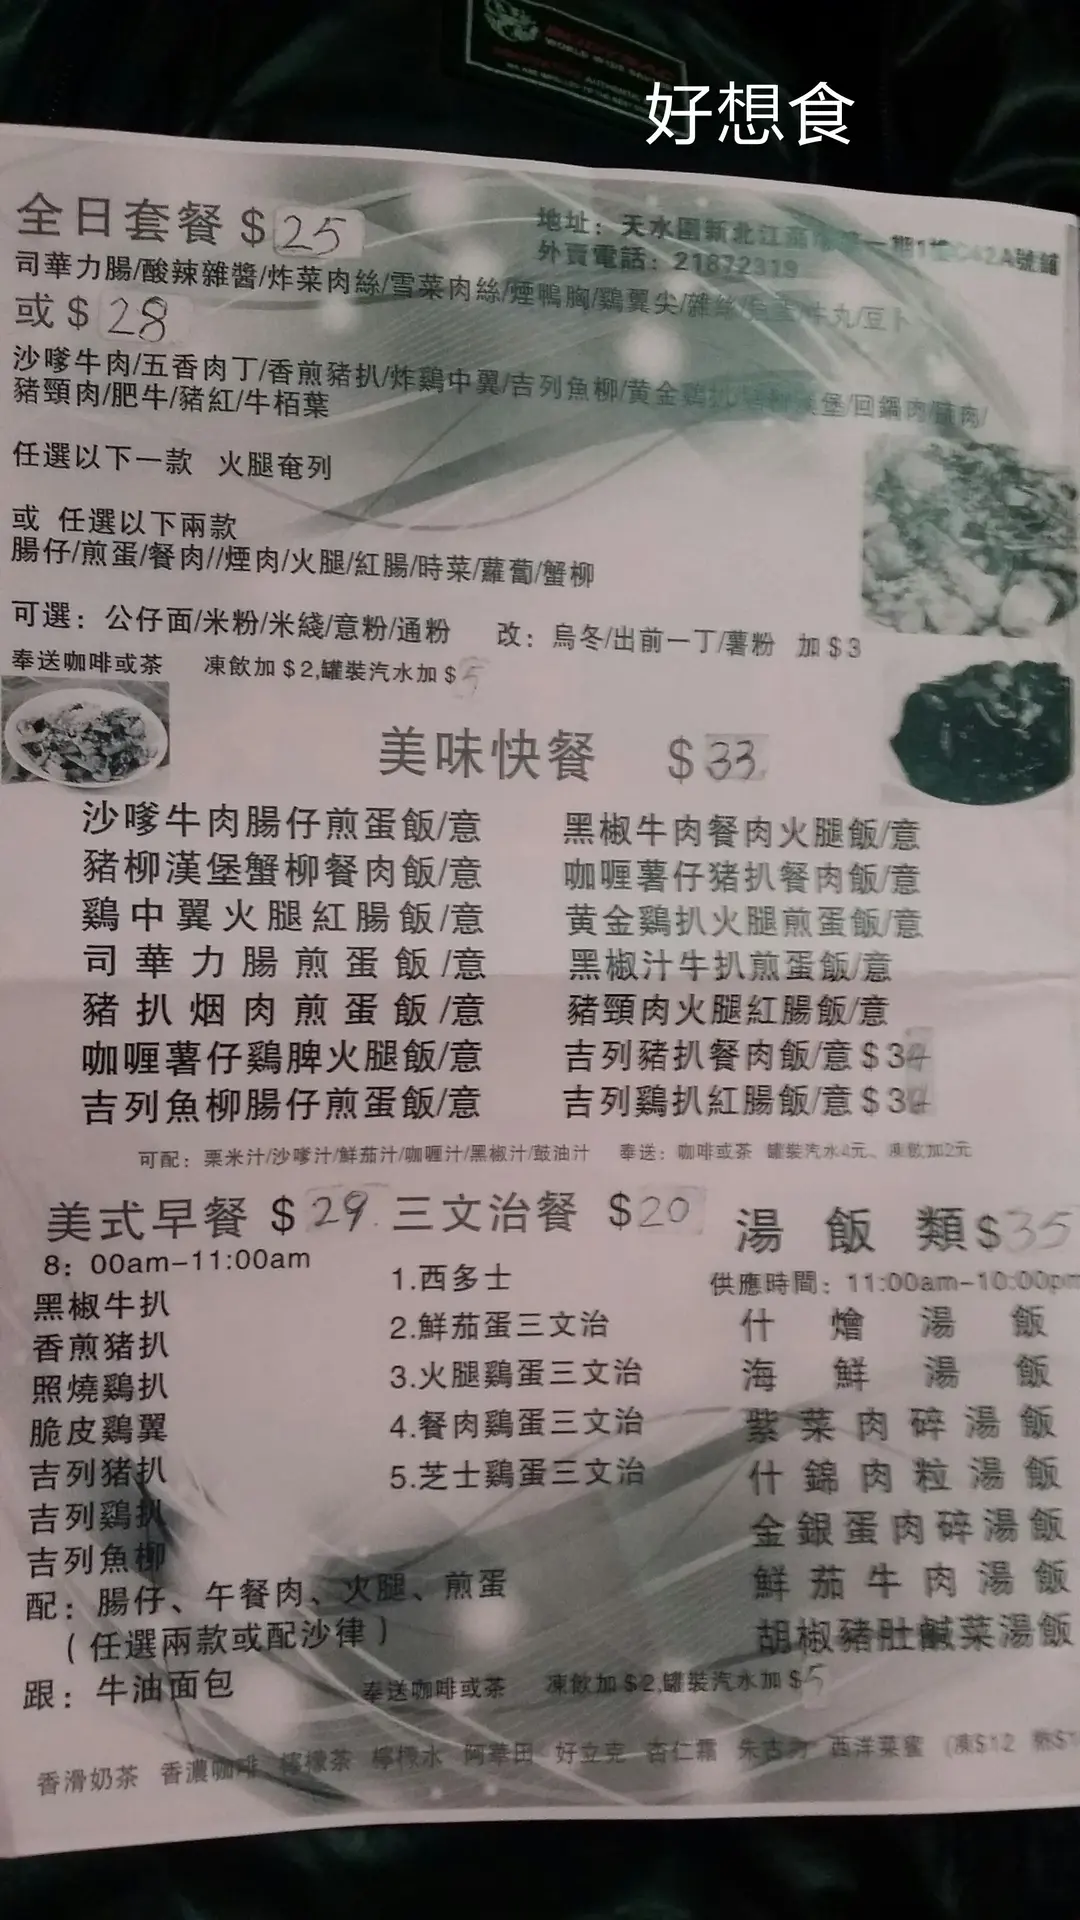 WORLD WIDE
好想食
全日套餐 $ 25
地址：天水圍新北江商場 一期1樓C42A號鋪
外賣電話：21872319
司華力腸/酸辣雜醬/炸菜肉絲/雪菜肉絲/煙鴨胸/鷄翼尖/雜絲/魚蛋/牛丸/豆卜
或 $ 28
沙嗲牛肉/五香肉丁/香煎豬扒/炸鷄中翼/吉列魚柳/黄金鷄扒/豬柳漢堡/回鍋肉/腩肉/
豬頸肉/肥牛/豬紅/牛栢葉
任選以下一款 火腿奄列
或 任選以下兩款
腸仔/煎蛋/餐肉//煙肉/火腿/紅腸/時菜/蘿蔔/蟹柳
可選：公仔面/米粉/米綫/意粉/通粉 改：烏冬/出前一丁/薯粉 加 $ 3
奉送咖啡或茶 凍飲加 $ 2,罐裝汽水加 $ 5
美味快餐 $ 33
沙嗲牛肉腸仔煎蛋飯/意 黑椒牛肉餐肉火腿飯/意
豬柳漢堡蟹柳餐肉飯/意 咖喱薯仔猪扒餐肉飯/意
鷄中翼火腿紅腸飯/意 黄金鷄扒火腿煎蛋飯/意
司華力腸煎蛋飯/意 黑椒汁牛扒煎蛋飯/意
豬扒烟肉煎蛋飯/意 豬頸肉火腿紅腸飯/意
咖喱薯仔鷄脾火腿飯/意 吉列豬扒餐肉飯/意 $ 34
吉列魚柳腸仔煎蛋飯/意 吉列鷄扒紅腸飯/意 $ 34
可配：栗米汁/沙嗲汁/鮮茄汁/咖喱汁/黑椒汁/鼓油汁 奉送：咖啡或茶 罐裝汽水4元、凍飲加2元
美式早餐 $ 29
8：00am-11:00am
黑椒牛扒
香煎猪扒
照燒鷄扒
脆皮鷄翼
吉列猪扒
吉列鷄扒
吉列魚柳
配：腸仔、午餐肉、火腿、煎蛋
（任選兩款或配沙律）
跟：牛油面包
三文治餐 $20
1.西多士
2.鮮茄蛋三文治
3.火腿鷄蛋三文治
4.餐肉鷄蛋三文治
5.芝士鷄蛋三文治
湯飯類$35
供應時間：11:00am-10:00pm
什燴湯飯
海鮮湯飯
紫菜肉碎湯飯
什錦肉粒湯飯
金銀蛋肉碎湯飯
鮮茄牛肉湯飯
胡椒豬肚鹹菜湯飯
奉送咖啡或茶 凍飲加 $ 2,罐裝汽水加 $ 5
香滑奶茶 香濃咖啡 檸檬茶 檸檬水 阿華田 好立克 杏仁霜 朱古力 西洋菜蜜 (凍$12 熱$1